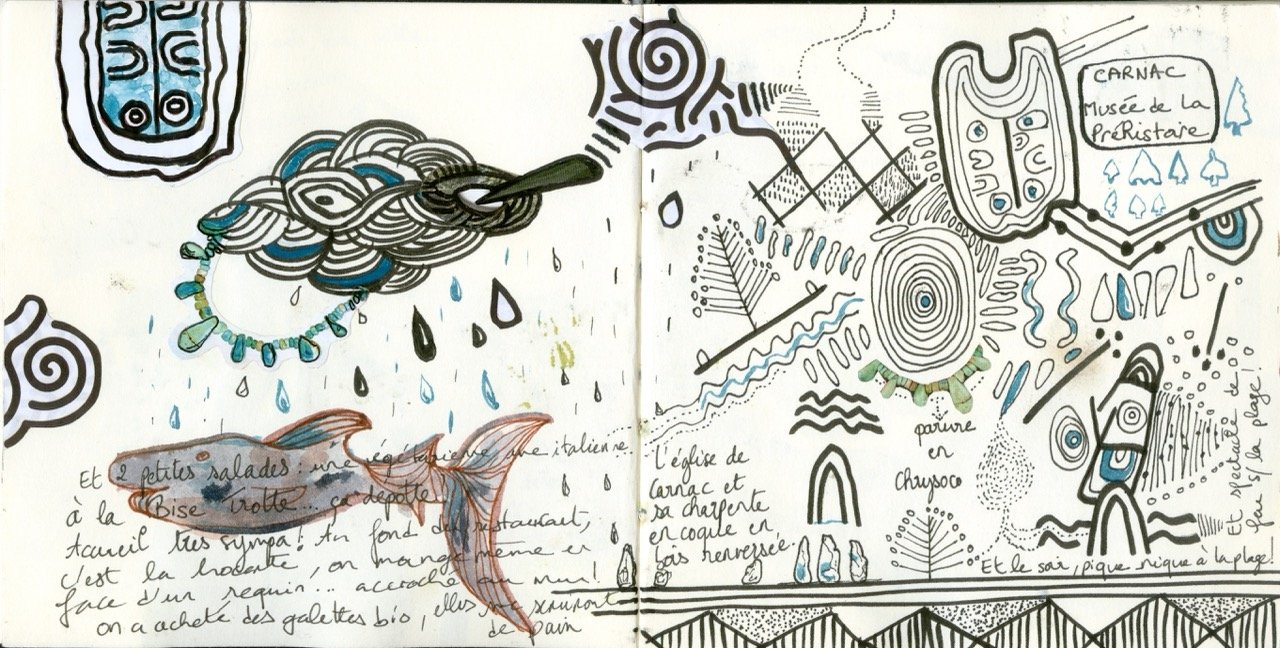 Et 2 petites salades : une végétarienne, une italienne.
à la Bise Trotte... ça dépote
Accueil très sympa ! Au fond du restaurant,
c'est la brocante, on mange même en
face d'un requin... accroché au mur !
on a acheté des galettes bio, elles me serviront
de pain
CARNAC
Musée de La
PréHistoire
parure
en
Chrysoco
L'église de
Carnac et
sa charpente
en coque en
bois renversée
Et le soir, pique nique à la plage !
Et spectacle de
feu s/ la plage !